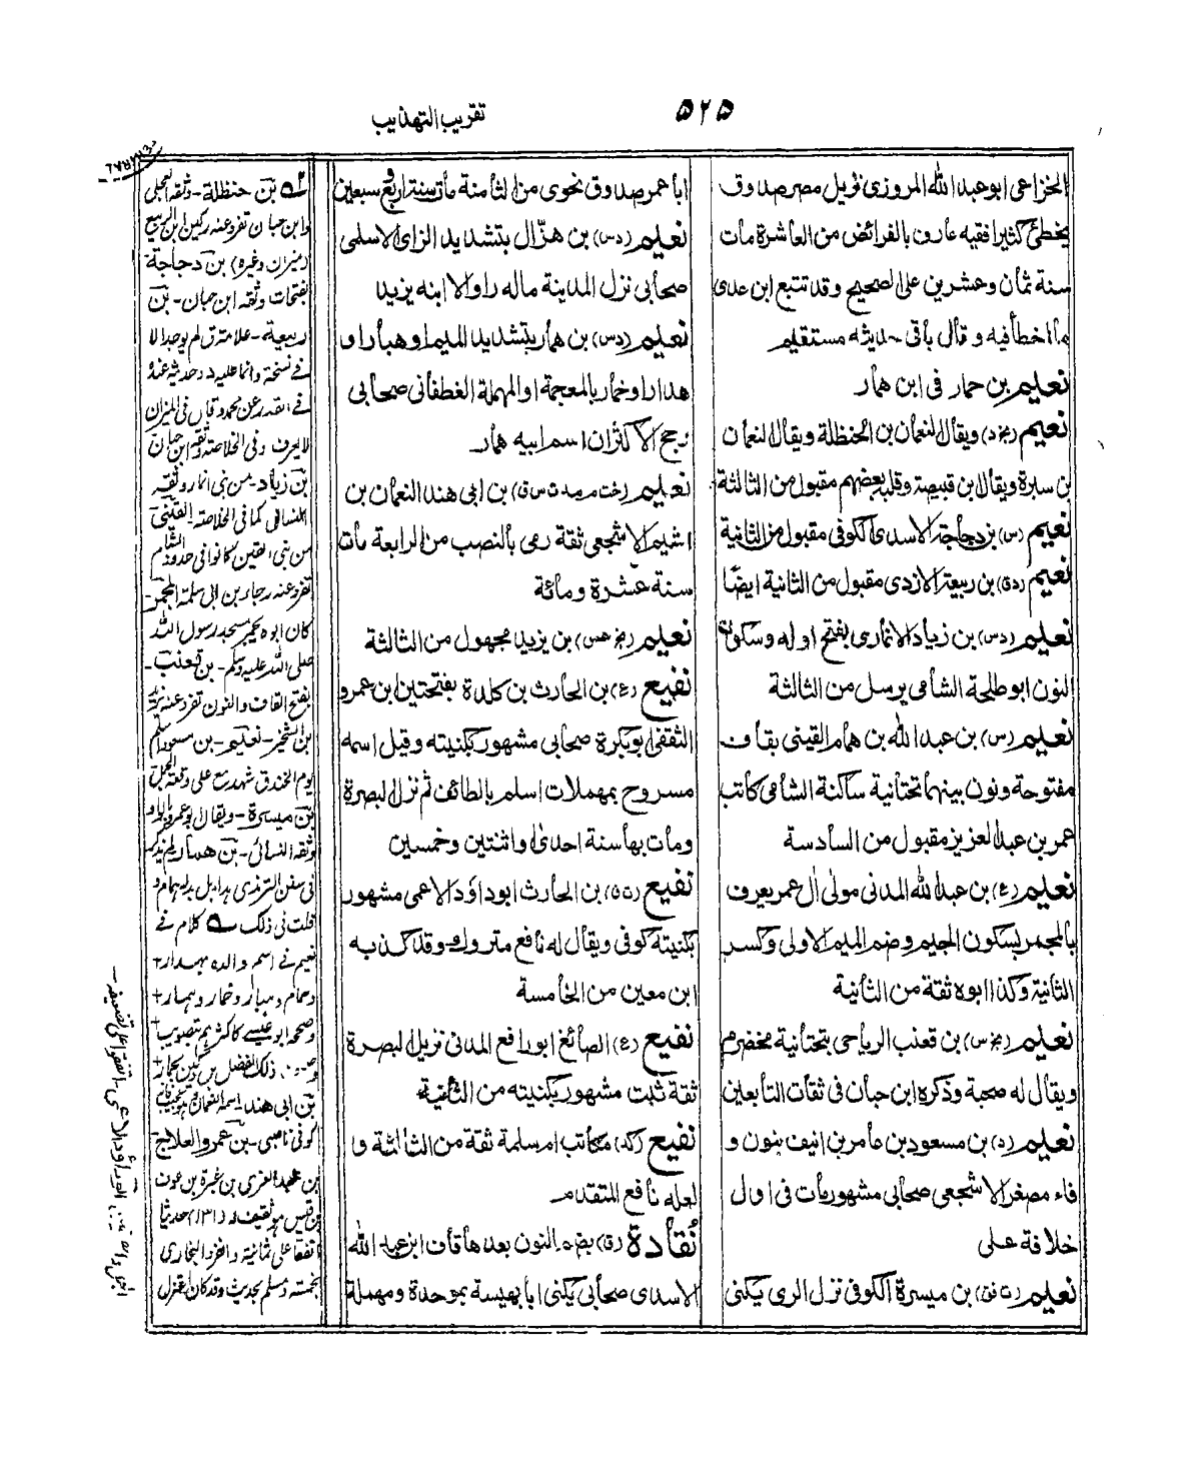 ۵۲۵
تقريب التهذيب
الخزاعى ابوعبد الله المروزى نزيل مصر صدوق
يخطئ كثيرا فقيه عارف بالفرائض من العاشرة مات
سنة ثمان وعشرين على الصحيح وقد تتبع ابن عدى
ما اخطأ فيه وقال باقى حديثه مستقيم
نعيم بن حمار فى ابن همار
نعيم ويقال النعمان بن الحنظلة ويقال النعمان
بن سبرة ويقال ابن قبيصة وقلبه بعضهم مقبول من الثالثة
نعيم (س) بن دجاجة الاسدى الكوفى مقبول من الثانية
نعيم (دق) بن ربيعة الازدى مقبول من الثانية ايضا
نعيم (دس) بن زياد الانمارى بفتح اوله وسكون
النون ابو طلحة الشامى يرسل من الثالثة
نعيم (س) بن عبد الله بن همام القينى بقاف
مفتوحة ونون بينهما تحتانية ساكنة الشامى كاتب
عمر بن عبد العزيز مقبول من السادسة
نعيم (ع) بن عبد الله المدنى مولى آل عمر يعرف
بالمجمر بسكون الجيم وضم الميم الاولى وكسر
الثانية وكذا ابوه ثقة من الثانية
نعيم بن قعنب الرياحى بتحتانية مخضرم
ويقال له صحبة وذكره ابن حبان فى ثقات التابعين
نعيم (د) بن مسعود بن عامر بن انيف بنون و
فاء مصغر الاشجعى صحابى مشهور مات فى اول
خلافة على
نعيم بن ميسرة الكوفى نزل الرى يكنى
ابا عمر صدوق نحوى من الثامنة مات سنة اربع وسبعين
نعيم (دس) بن هزّال بتشديد الزاى الاسلمى
صحابى نزل المدينة ماله راو الا ابنه يزيد
نعيم (دس) بن همار بتشديد الميم او هبار او
هدار او خمار بالمعجمة او المهملة الغطفانى صحابى
رجح الاكثر ان اسم ابيه همار
نعيم (خت م مد ت س ق) بن ابى هند النعمان بن
اشيم الاشجعى ثقة رمى بالنصب من الرابعة مات
سنة عشرة ومائة
نعيم بن يزيد مجهول من الثالثة
نفيع (ع) بن الحارث بن كلدة بفتحتين ابن عمرو
الثقفى ابو بكرة صحابى مشهور بكنيته وقيل اسمه
مسروح بمهملات اسلم بالطائف ثم نزل البصرة
ومات بها سنة احدى او اثنتين وخمسين
نفيع (ت ق) بن الحارث ابو داؤد الاعمى مشهور
بكنيته كوفى ويقال له نافع متروك وقد كذبه
ابن معين من الخامسة
نفيع (ع) الصائغ ابو رافع المدنى نزيل البصرة
ثقة ثبت مشهور بكنيته من الثانية
نفيع (كد) مكاتب ام سلمة ثقة من الثالثة و
لعله نافع المتقدم
نُقادة (ق) بضم النون بعدها قاف ابن عبد الله
الاسدى صحابى يكنى ابا بهيسة بموحدة ومهملة
بن حنظلة - وثقه العجلى
وابن حبان تفرد عنه ركين ابن الربيع
(ميزان وغيره) بن دجاجة
بفتحات وثقه ابن حبان - بن
ربيعة - علامة ق لم يوجد الا
فى نسخة وانما عليه د وحديثه عنده
فى القدر عن محمد وقال فى الميزان
لا يعرف وفى الخلاصة وثقه ابن حبان
بن زياد - من بنى انمار وثقه
النسائى كما فى الخلاصة القينى
من بنى القين كانوا فى حدود الشام
تفرد عنه رجاء بن ابى سلمة المجمر
كان ابوه يجمر مسجد رسول الله
صلى الله عليه وسلم - بن قعنب -
بفتح القاف والنون تفرد عنه يزيد
بن الشخير - نعيم - بن مسعود اسلم
يوم الخندق شهد مع على وقعة الجمل
بن ميسرة - ويقال ابو عمرو بالواو
وثقه النسائى - بن هسار لم يذكر
فى سنن الترمذى هدار بل بدله همام و
قلت فى ذلك كلام فى
نعيم فى اسم والده هدار +
وهمام وهبار وخمار وهمار +
وصححه ابو عيسى كاكثرهم بتصويب +
ذلك الفضل بن دكين بحمار +
بن ابى هند اسمه النعمان
كوفى ناصبى - بن عمرو العلاج
بن عبد العزى بن غيرة بن عوف
بن قيس وهو ثقيف له (۱۳۲) حديثا
اتفقا على ثمانية وانفرد البخارى
بخمسة ومسلم بحديث وقد كان اعتزل
ابو داؤد الاعمى - اتفقوا على تضعيفه -